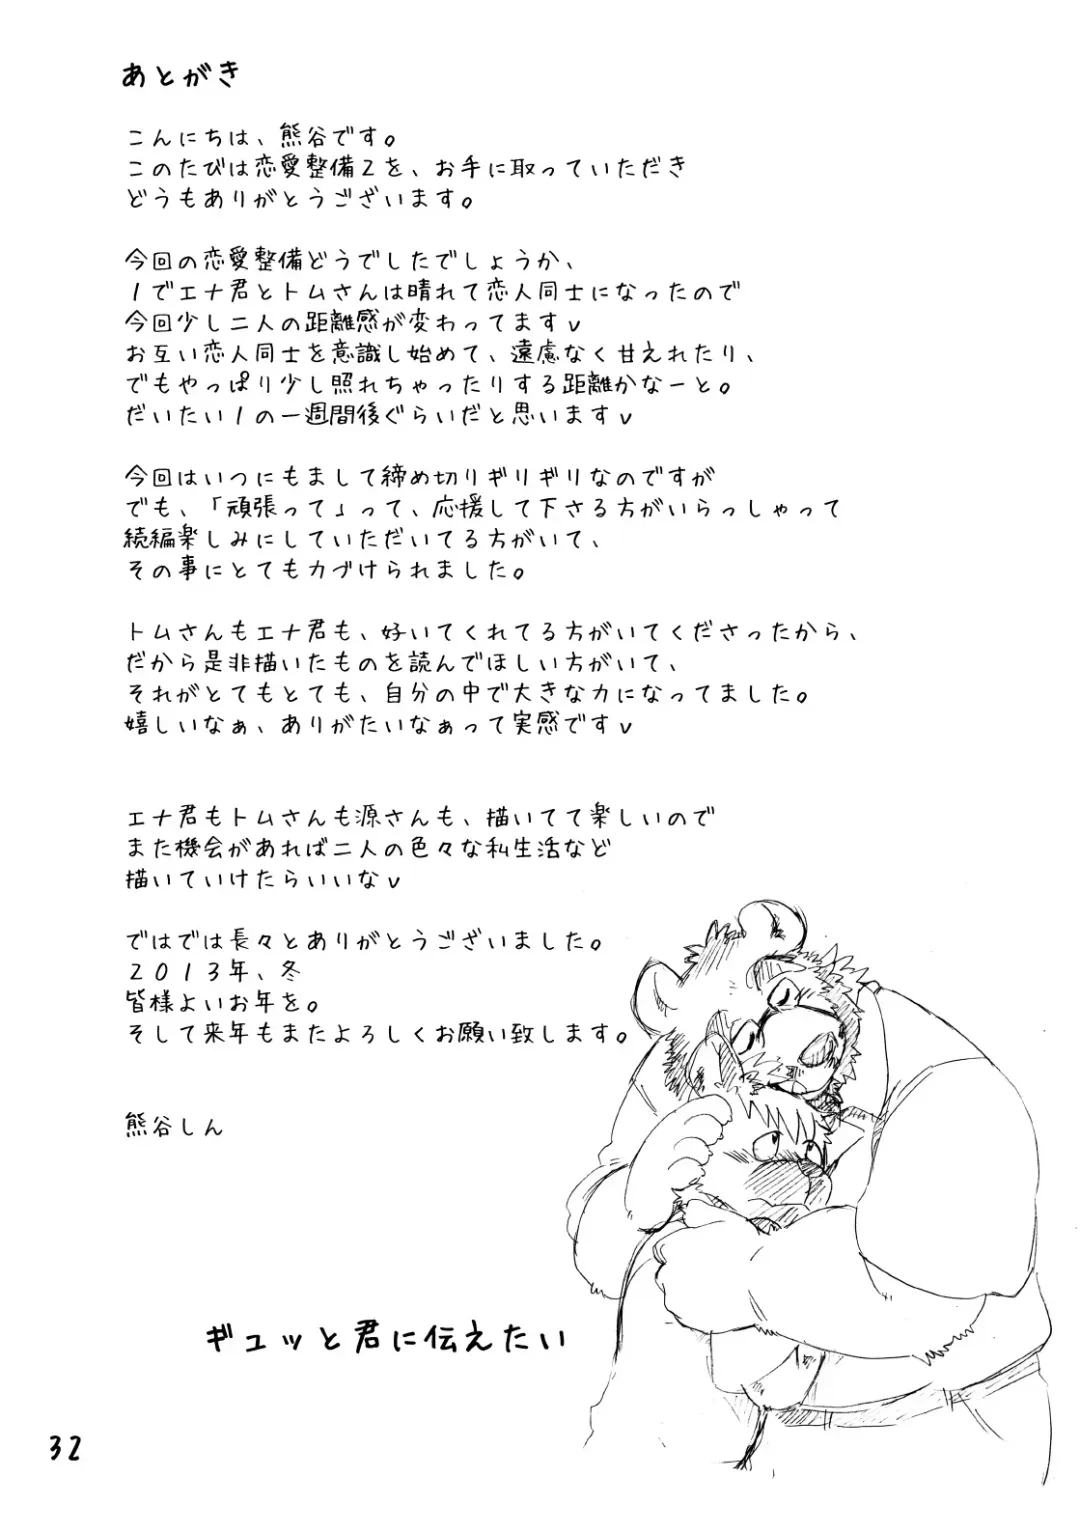 あとがき
こんにちは、熊谷です。
このたびは恋愛整備2を、お手に取っていただき
どうもありがとうございます。
今回の恋愛整備どうでしたでしょうか、
1でエナ君とトムさんは晴れて恋人同士になったので
今回少し二人の距離感が変わってます✓
お互い恋人同士を意識し始めて、遠慮なく甘えれたり、
でもやっぱり少し照れちゃったりする距離かなーと。
だいたい1の一週間後ぐらいだと思います✓
今回はいつにもまして締め切りギリギリなのですが
でも、「頑張って」って、応援して下さる方がいらっしゃって
続編楽しみにしていただいてる方がいて、
その事にとても力づけられました。
トムさんもエナ君も、好いてくれてる方がいてくださったから、
だから是非描いたものを読んでほしい方がいて、
それがとてもとても、自分の中で大きな力になってました。
嬉しいなぁ、ありがたいなぁって実感です✓
エナ君もトムさんも源さんも、描いてて楽しいので
また機会があれば二人の色々な私生活など
描いていけたらいいな✓
ではでは長々とありがとうございました。
2013年、冬
皆様よいお年を。
そして来年もまたよろしくお願い致します。
熊谷しん
ギュッと君に伝えたい
32